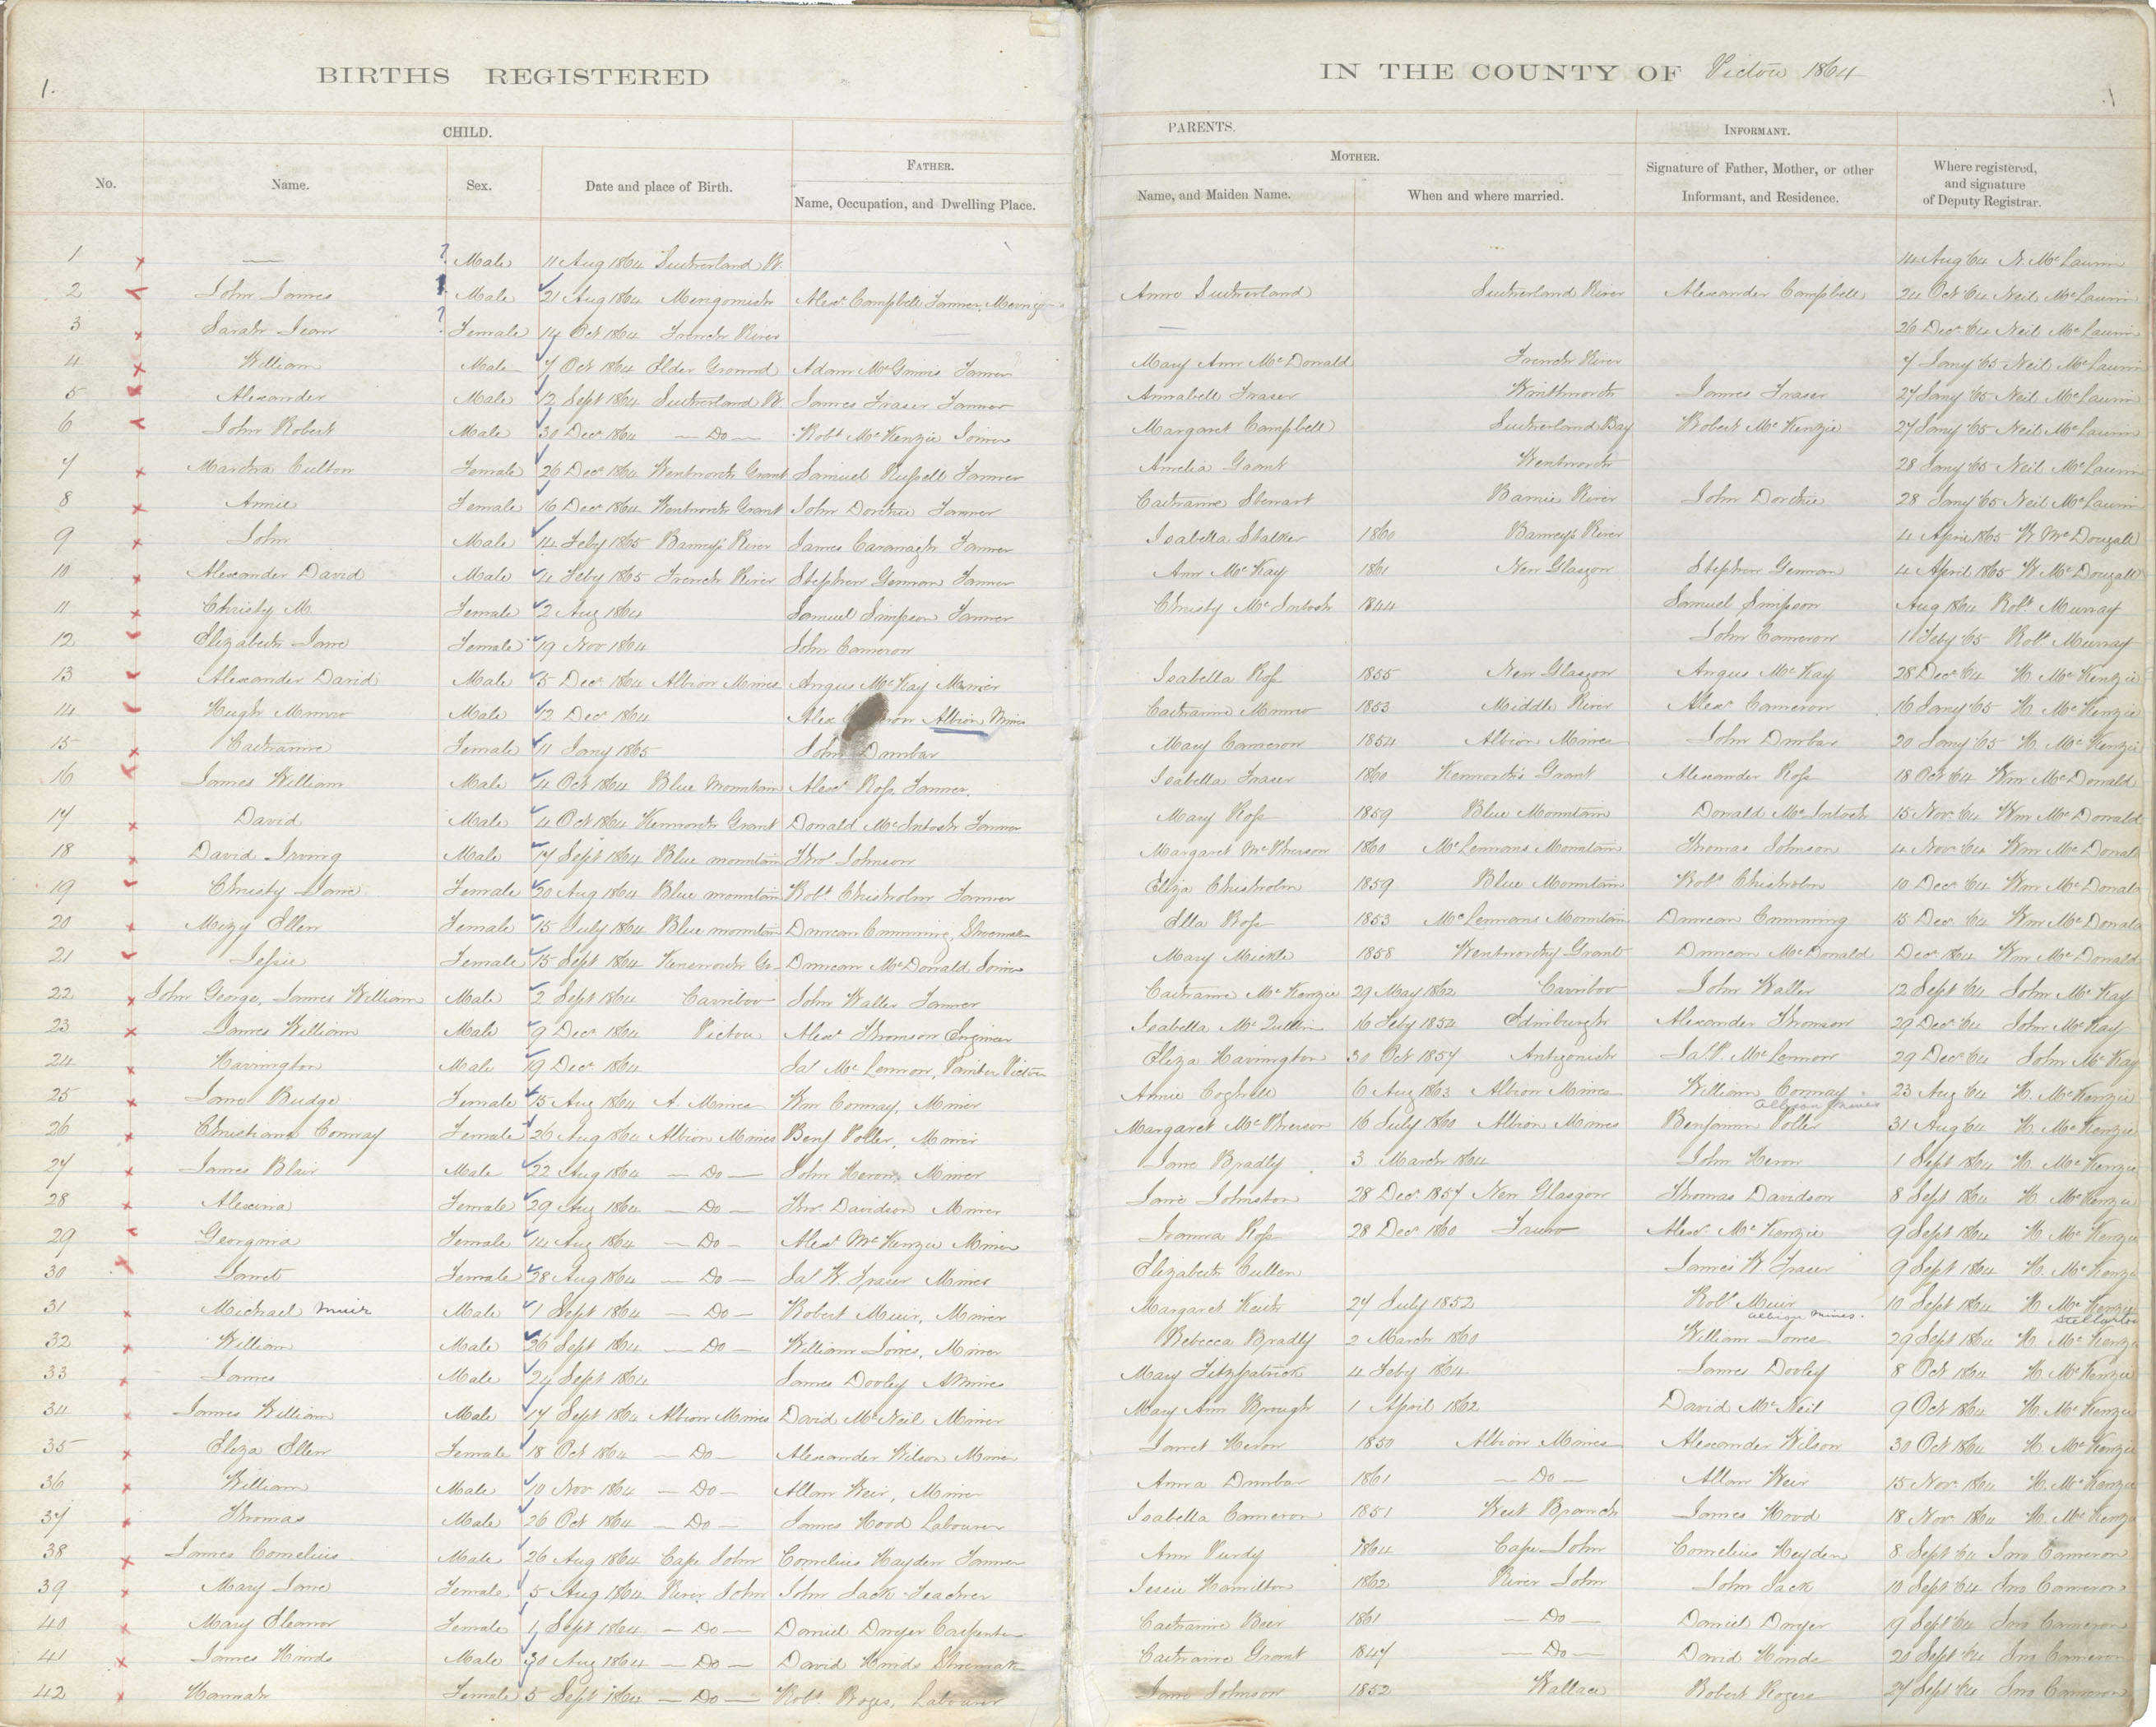 1.
BIRTHS REGISTERED
IN THE COUNTY OF Pictou 1864
1
CHILD.
PARENTS.
INFORMANT.
FATHER.
MOTHER.
No.
Name.
Sex.
Date and place of Birth.
Name, Occupation, and Dwelling Place.
Name, and Maiden Name.
When and where married.
Signature of Father, Mother, or other Informant, and Residence.
Where registered, and signature of Deputy Registrar.
1 — ? Male 11 Aug 1864 Sutherland R. 14 Aug '64 N. McLaurin
2 John James Male 21 Aug 1864 Merigomish Alexr Campbell Farmer, Anne Sutherland Sutherland River Alexander Campbell 24 Oct '64 Neil McLaurin
3 Sarah Jean ? Female 14 Oct 1864 French River — 26 Decr '64 Neil McLaurin
4 William Male 7 Oct 1864 Elder Ground Adam McGinnis Farmer Mary Ann McDonald French River 7 Jany '65 Neil McLaurin
5 Alexander Male 12 Sept 1864 Sutherland R. James Fraser Farmer Annabell Fraser James Fraser 27 Jany '65 Neil McLaurin
6 John Robert Male 30 Decr 1864 — Do — Robt McKenzie Joiner Margaret Campbell Sutherland Bay Robert McKenzie 27 Jany '65 Neil McLaurin
7 Martha Culton Female 26 Decr 1864 Wentworth Grant Samuel Russell Farmer Amelia Grant Wentworth 28 Jany '65 Neil McLaurin
8 Annie Female 16 Decr 1864 Wentworth Grant John Farmer Catharine Stewart Barnie River John 28 Jany '65 Neil McLaurin
9 John Male 14 Feby 1865 Barneys River James Cavanagh Farmer Isabella Stalker 1860 Barneys River 4 April 1865 W. McDougall
10 Alexander David Male 4 Feby 1865 French River Stephen Farmer Ann McKay 1861 New Glasgow Stephen 4 April 1865 W McDougall
11 Christy M. Female 2 Aug 1864 Samuel Simpson Farmer Christy McIntosh 1844 Samuel Simpson Aug 1864 Robt Murray
12 Elizabeth Jane Female 19 Nov 1864 John Cameron John Cameron 1 Feby '65 Robt Murray
13 Alexander David Male 5 Decr 1864 Albion Mines Angus McKay Miner Isabella Ross 1855 New Glasgow Angus McKay 28 Decr '64 H. McKenzie
14 Hugh Munro Male 12 Decr 1864 Alex Albion Mines Catharine Munro 1853 Middle River Alexr Cameron 16 Jany '65 H. McKenzie
15 Catharine Female 11 Jany 1865 John Dunbar Mary Cameron 1854 Albion Mines John Dunbar 20 Jany '65 H. McKenzie
16 James William Male 4 Oct 1864 Blue Mountain Alexr Ross Farmer. Isabella Fraser 1860 Kenworth's Grant Alexander Ross 18 Oct '64 Wm McDonald
17 David Male 4 Oct 1864 Kenworth Grant Donald McIntosh Farmer Mary Ross 1859 Blue Mountain Donald McIntosh 15 Novr '64 Wm McDonald
18 David Irving Male 17 Sept 1864 Blue mountain Thos Johnson Margaret McPherson 1860 McLennans Mountain Thomas Johnson 4 Novr '64 Wm McDonald
19 Christy Jane Female 20 Aug 1864 Blue mountain Robt Chisholm Farmer Eliza Chisholm 1859 Blue Mountain Robt Chisholm 10 Decr '64 Wm McDonald
20 Mizy Ellen Female 15 July 1864 Blue mountain Duncan Cumming, Shoemaker Ella Ross 1853 McLennans Mountain Duncan Cumming 15 Decr '64 Wm McDonald
21 Jessie Female 15 Sept 1864 Kenworth Gr Duncan McDonald Joiner Mary Mickle 1858 Wentworthy Grant Duncan McDonald Decr 1864 Wm McDonald
22 John George, James William Male 2 Sept 1864 Carriboo John Waller Farmer Catharine McKenzie 29 May 1862 Carriboo John Waller 12 Sept '64 John McKay
23 James William Male 9 Decr 1864 Pictou Alexr Thomson Engineer Isabella 16 Feby 1852 Edinburgh Alexander Thomson 29 Decr '64 John McKay
24 Harrington Male 19 Decr 1864 Jas McLennon, Painter Pictou Eliza Harrington 30 Oct 1857 Antigonish Jas P. McLennon 29 Decr '64 John McKay
25 Jane Budge Female 15 Aug 1864 A. Mines Wm Conway, Miner Annie Coghill 6 Aug 1863 Albion Mines William Conway 23 Aug '64 H. McKenzie
Albion Mines
26 Christiana Conway Female 26 Aug 1864 Albion Mines Benj Potter, Miner Margaret McPherson 16 July 1860 Albion Mines Benjamin Potter 31 Aug 64 H. McKenzie
27 James Blair Male 22 Aug 1864 — Do — John Heron, Miner Jane Bradly 3 March 1864 John Heron 1 Sept 1864 H. McKenzie
28 Alexina Female 29 Aug 1864 — Do — Thos. Davidson Miner Jane Johnston 28 Decr 1857 New Glasgow Thomas Davidson 8 Sept 1864 H. McKenzie
29 Georgina Female 14 Aug 1864 — Do — Alexr McKenzie Miner Joanna Ross 28 Decr 1860 Truro Alexr McKenzie 9 Sept 1864 H McKenzie
30 Janet Female 28 Aug 1864 — Do — Jas W. Fraser Miner Elizabeth Cullen James W Fraser 9 Sept 1864 H. McKenzie
31 Michael Muir Male 1 Sept 1864 — Do — Robert Muir, Miner Margaret Keith 24 July 1852 Robt Muir 10 Sept 1864 H McKenzie
Albion Mines. Stellarton
32 William Male 26 Sept 1864 — Do — William Jones, Miner Rebecca Bradly 2 March 1860 William Jones 29 Sept 1864 H. McKenzie
33 James Male 24 Sept 1864 James Dooley A Mines Mary Fitzpatrick 4 Feby 1864 James Dooley 8 Oct 1864 H McKenzie
34 James William Male 17 Sept 1864 Albion Mines David McNeil Miner Mary Ann Brough 1 April 1862 David McNeil 9 Oct 1864 H. McKenzie
35 Eliza Ellen Female 18 Oct 1864 — Do — Alexander Wilson Miner Janet Heron 1850 Albion Mines Alexander Wilson 30 Oct 1864 H. McKenzie
36 William Male 10 Nov 1864 — Do — Allan Weir, Miner Anna Dunbar 1861 — Do — Allan Weir 15 Novr 1864 H. McKenzie
37 Thomas Male 26 Oct 1864 — Do — James Hood Labourer Isabella Cameron 1851 West Branch James Hood 18 Nov 1864 H. McKenzie
38 James Cornelius Male 26 Aug 1864 Cape John Cornelius Hayden Farmer Ann Purdy 1864 Cape John Cornelius Heyden 8 Sept '64 Jno Cameron
39 Mary Jane Female 5 Aug 1864 River John John Jack Teacher Jessie Hamilton 1862 River John John Jack 10 Sept '64 Jno Cameron
40 Mary Eleanor Female 1 Sept 1864 — Do — Daniel Dwyer Carpenter Catharine Beer 1861 — Do — Daniel Dwyer 19 Sept '64 Jno Cameron
41 James Hinds Male 30 Aug 1864 — Do — David Hinds Shoemak Catharine Grant 1847 — Do — David Hinds 20 Sept '64 Jno Cameron
42 Hannah Female 5 Sept 1864 — Do — Robt Roges, Labourer Jane Johnson 1852 Wallace Robert Rogers 24 Sept '64 Jno Cameron